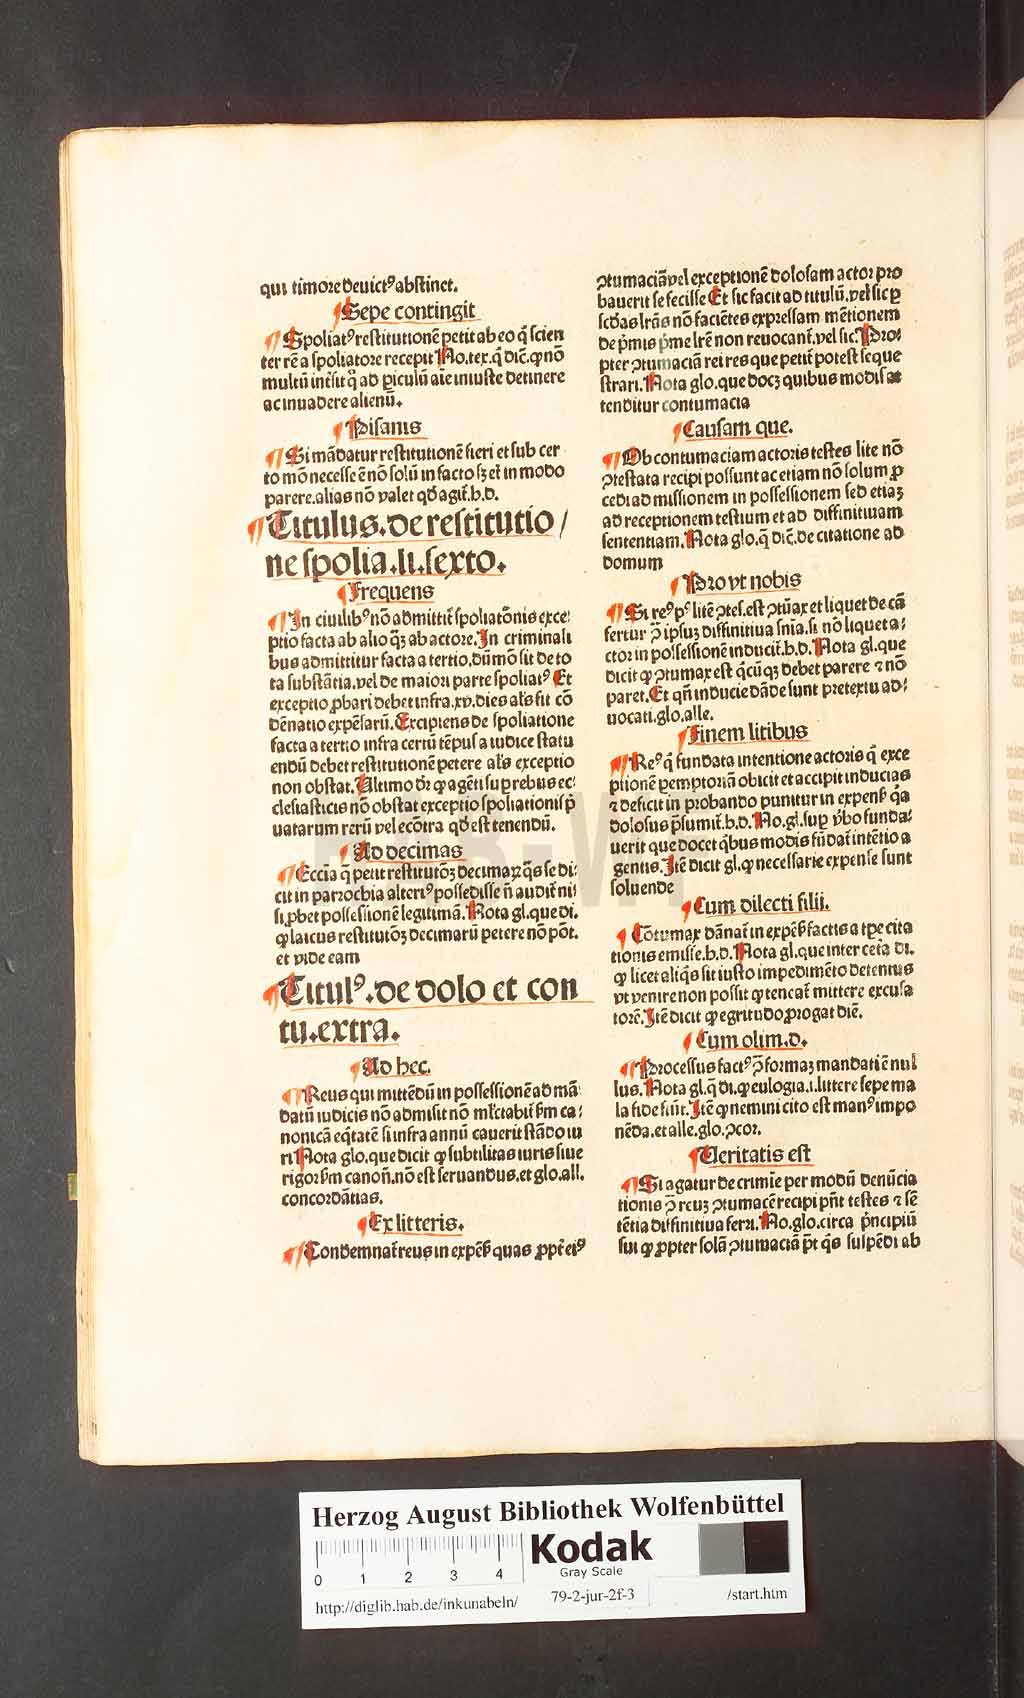 qui timore deuictꝰ abstinet.
¶ Sepe contingit
¶ Spoliatꝰ restitutionē petit ab eo q̇ scien
ter rē a spoliatore recepit No.tex.q̇ dic̄.ꝙ nō
multū int̄sit qͥ ad ꝑiculū aīe iniuste detinere
ac inuadere alienū.
¶ Pisanis
¶ Si mādatur restitutionē fieri et sub cer
to mō necesse ē nō solū in facto sꝫ et̄ in modo
parere.alias nō valet qd̓ agit̄.h.d.
¶ Titulus.de restitutio/
ne spolia.li.sexto.
¶ Frequens
¶ In ciuilibꝰ nō admittit̄ spoliatōnis exce:
ptio facta ab alio qꝫ ab actore.In criminali
bus admittitur facta a tertio.dū mō sit de to
ta substātia.vel de maiori parte spoliatꝰ Et
exceptio ꝓbari debet infra.xv.dies al̓s fit cō
dēnatio expēsarū.Excipiens de spoliatione
facta a tertio infra certū tēpus a iudice statu
endū debet restitutionē petere al̓s exceptio
non obstat.Ultimo dr̄ ꝙ agēti suꝑ rebus ec:
clesiasticis nō obstat exceptio spoliationis p̄
uatarum rerū vel ecōtra qd̓ est tenendū.
¶ Ad decimas
¶ Eccīa q̄ petit restitutōꝫ decimaꝝ q̄s se di:
cit in parrochia alteriꝰ possedisse n̄ audit̄ ni
si ꝓbet possessionē legitimā.Nota gl.que di.
ꝙ laicus restitutōꝫ decimarū petere nō pōt.
et vide eam
¶ Titulꝰ.de dolo et con
tu.extra.
¶ Ad hec.
¶ Reus qui mittēdū in possessionē ad mā
datū iudicis nō admisit nō ml̓ctabit̄ ẜm ca:
nonicā eq̇tatē si infra annū cauerit stādo iu
ri Nota glo.que dicit ꝙ subtilitas iuris siue
rigor ẜm canoñ.nō est seruandus.et glo.all.
concordātias.
¶ Ex litteris.
¶ Condemnat̄ reus in expēs̄ quas ꝓpt̄ eiꝰ
ꝯtumaciā vel exceptionē dolosam actor pro
bauerit se fecisse Et sic facit ad titulū.vel sic ꝑ
sc̄das lr̄as nō faciētes expressam mētionem
de p̄mis p̄me lr̄e non reuocant̄.vel sic.Pro:
pter ꝯtumaciā rei res que petit̄ potest seque
strari.Nota glo.que docꝫ quibus modis at
tenditur contumacia
¶ Causam que.
¶ Ob contumaciam actoris testes lite nō
ꝯtestata recipi possunt ac etiam nō solum ꝓ
cedi ad missionem in possessionem sed etiaꝫ
ad receptionem testium et ad diffinitiuam
sententiam.Nota glo.q̄ dic̄.de citatione ad
domum
¶ Pro vt nobis
¶ Si reꝰ pꝰ litē ꝯtes.est ꝯtūax et liquet de cā
fertur ꝯ̄ ipsuꝫ diffinitiua sn̄ia.si nō liquet a:
ctor in possessionē inducit̄.h.d.Nota gl.que
dicit ꝙ ꝯtumax est q̄cūqꝫ debet parere ⁊ nō
paret.Et qn̄ inducie dāde sunt pretextu ad:
uocati.glo.alle.
¶ Finem litibus
¶ Reꝰ q̇ fundata intentione actoris q̇ exce
ptionē ꝑemptoriā obicit et accipit inducias
⁊ deficit in probando punitur in expens̄ q̄a
dolosus p̄sumit̄.h.d.No.gl.suꝑ ꝟbo funda:
uerit que docet q̇bus modis fūdat̄ intētio a
gentis.Itē dicit gl.ꝙ necessarie expense sunt
soluende
¶ Cum dilecti filii.
¶ Cōtumax dānat̄ in expēs̄ factis a tꝑe cita
tionis emisse.h.d.Nota gl.que inter cetā di.
ꝙ licet aliq̇s sit iusto impedimēto detentus
vt venire non possit ꝙ tencat̄ mittere excusa
torē.Itē dicit ꝙ egritudo ꝓrogat diē.
¶ Cum olim.d.
¶ Processus factꝰ ꝯ̄ formaꝫ mandati ē nul
lus.Nota gl.q̄ di.ꝙ eulogia.i.littere sepe ma
la fide fiūt.Itē ꝙ nemini cito est manꝰ impo
nēda.et alle.glo.ꝯcor.
¶ Ueritatis est
¶ Si agatur de crimīe per modū denūcia
tionis ꝯ̄ reuꝫ ꝯtumacē recipi pn̄t testes ⁊ sē
tētia diffinitiua ferri.No.glo.circa p̄ncipiū
sui ꝙ ꝓpter solā ꝯtumaciā pt̄ q̇s suspēdi ab
Herzog August Bibliothek Wolfenbüttel
0 1 2 3 4
Kodak
Gray Scale
http://diglib.hab.de/inkunabeln/ 79-2-jur-2f-3 /start.htm
HAB-WF